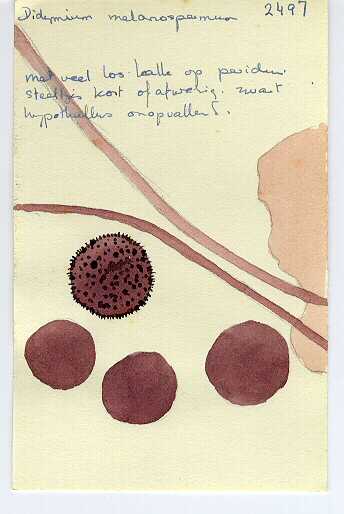 Didymium melanospermum 2497
met veel los kalk op peridium
steeltjes kort of afwezig. zwart
hypothallus onopvallend.